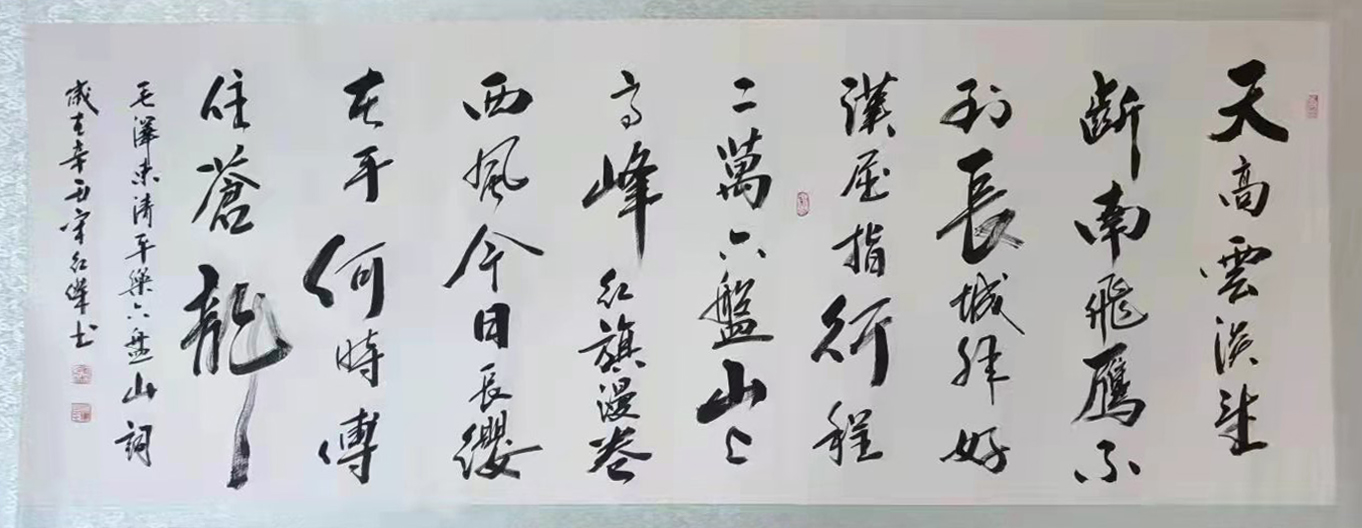 天高雲淡望
斷南飛雁不
到長城非好
漢屈指行程
二萬六盤山上
高峰紅旗漫卷
西風今日長纓
在手何時縛
住蒼龍
毛澤東清平樂六盤山詞
歲在辛丑紅偉书